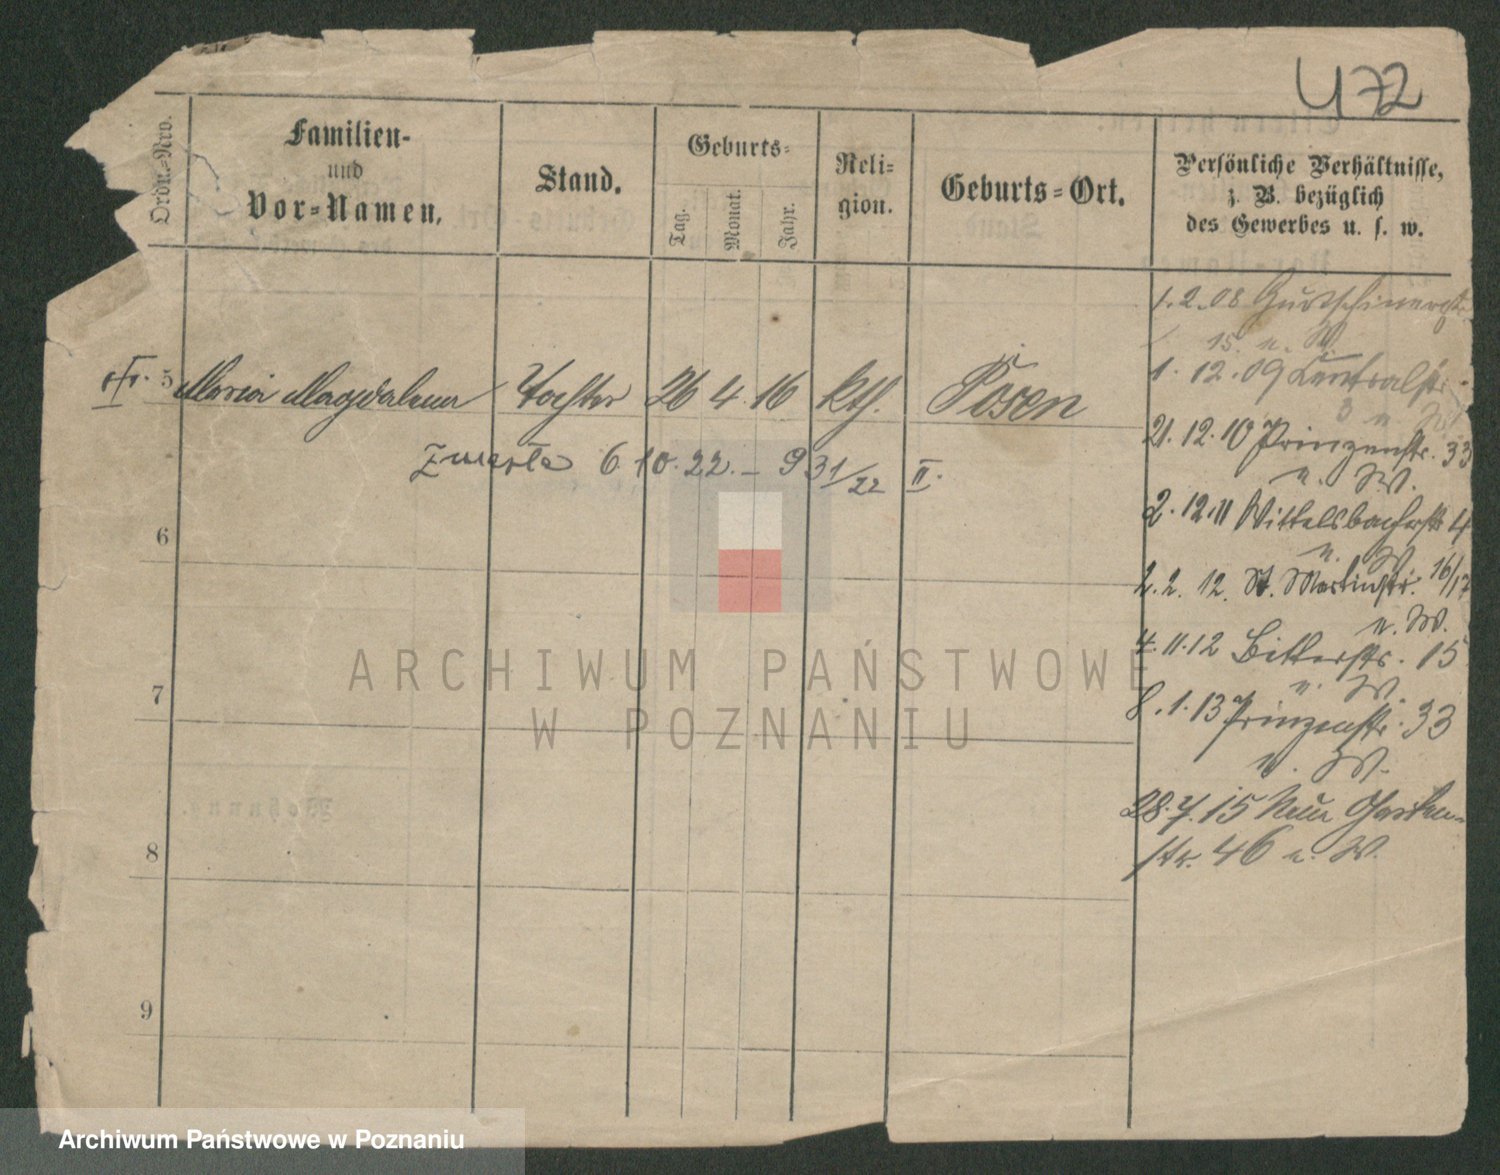 472
Ordn.-Nro.
Familien-
und
Vor-Namen.
Stand.
Geburts-
Tag.
Monat.
Jahr.
Reli-
gion.
Geburts-Ort.
Persönliche Verhältnisse,
z. B. bezüglich
des Gewerbes u. s. w.
5 Maria Magdalena Tochter 26 4 16 kth. Posen
zmarła 6.10.22. – 931/22 II.
6
7
8
9
1.2.08 Gurtschinerstr.
15. u. W.
1.12.09 Centralstr.
3 u. W.
21.12.10 Prinzenstr. 33
u. W.
2.12.11 Wittelsbacherstr. 4
u. W.
2.2.12. St. Martinstr. 16/17
u. W.
4.11.12 Bitterstr. 15
u. W.
8.1.13 Prinzenstr. 33
u. W.
28.7.15 Neue Garten-
str. 46 u. W.
ARCHIWUM PAŃSTWOWE
W POZNANIU
Archiwum Państwowe w Poznaniu